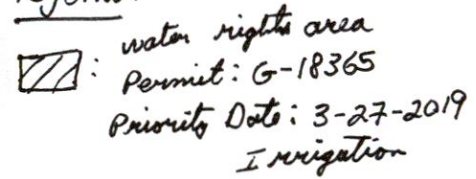 : water rights area
Permit: G-18365
Priority Date: 3-27-2019
Irrigation